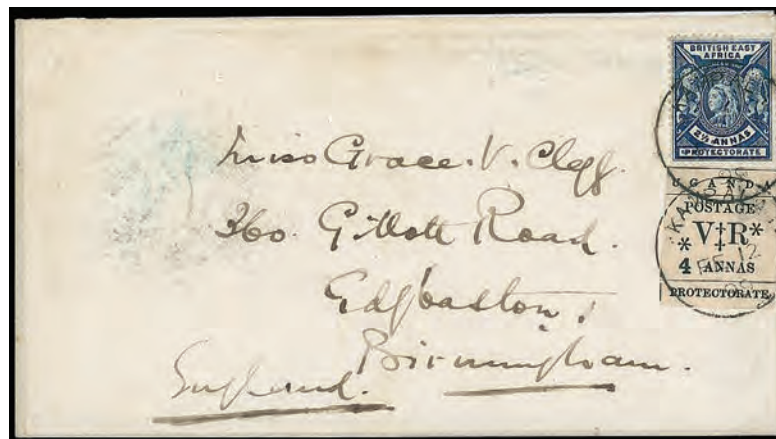 BRITISH EAST
AFRICA
2½ ANNAS
PROTECTORATE
UGANDA
POSTAGE
* V‡R *
4 ANNAS
PROTECTORATE
FE 12
Miss Grace. V. Clegg.
360. Gillott Road.
Edgbaston,
Birmingham.
England.